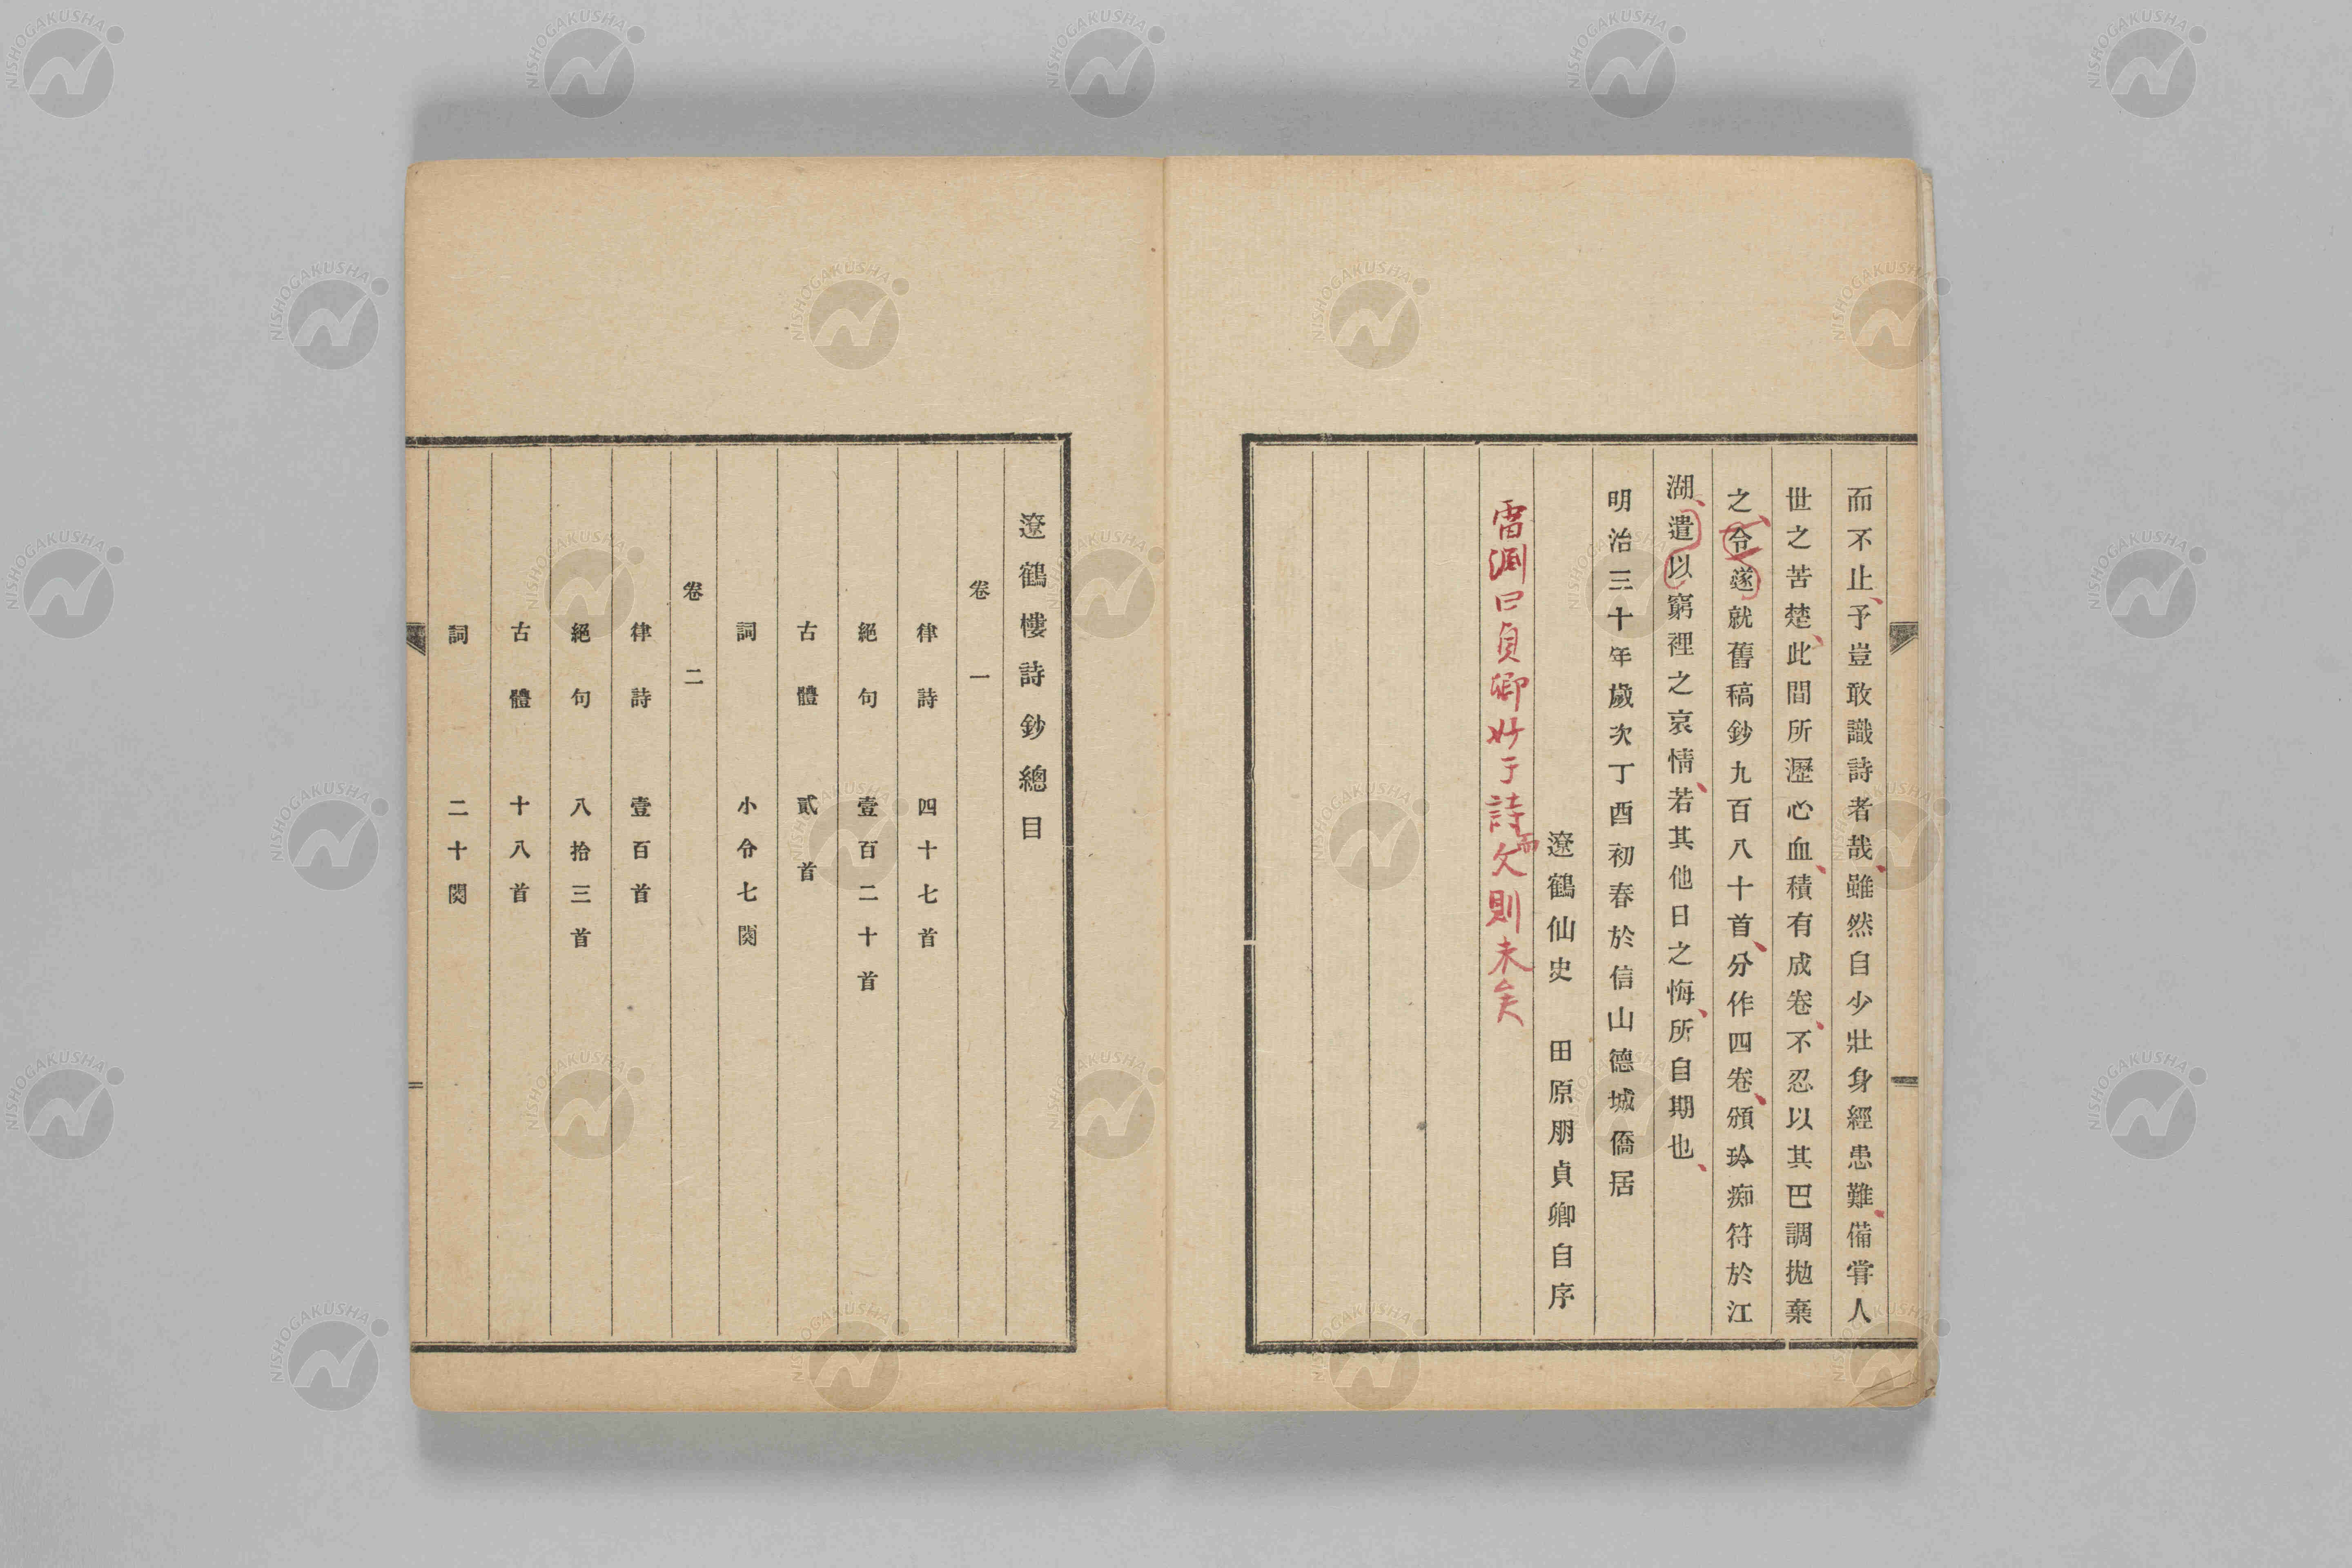 而不止予豈敢識詩者哉雖然自少壯身經患難備甞人
世之苦楚此間所瀝心血積有成卷不忍以其巴調拋棄
之令遂就舊稿鈔九百八十首分作四卷頒玲痴符於江
湖遣以窮裡之哀情若其他日之悔所自期也
明治三十年歲次丁酉初春於信山德城僑居
遼鶴仙史 田原朋貞卿自序
雷淵曰貞卿妙于詩而文則未矣
遼鶴樓詩鈔總目
卷一
律詩 四十七首
絕句 壹百二十首
古體 貳首
詞 小令七闋
卷二
律詩 壹百首
絕句 八拾三首
古體 十八首
詞 二十闋
NISHOGAKUSHA